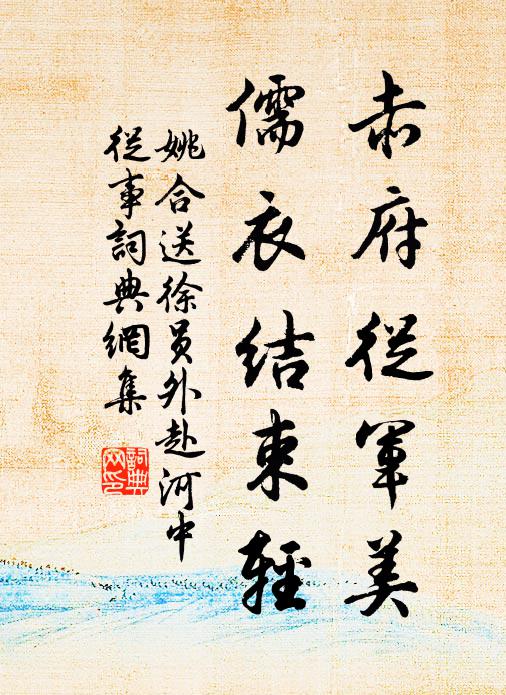 赤府從軍美
儒衣結束輕
姚合送徐員外赴河中
從事詞典網集
詞典网印